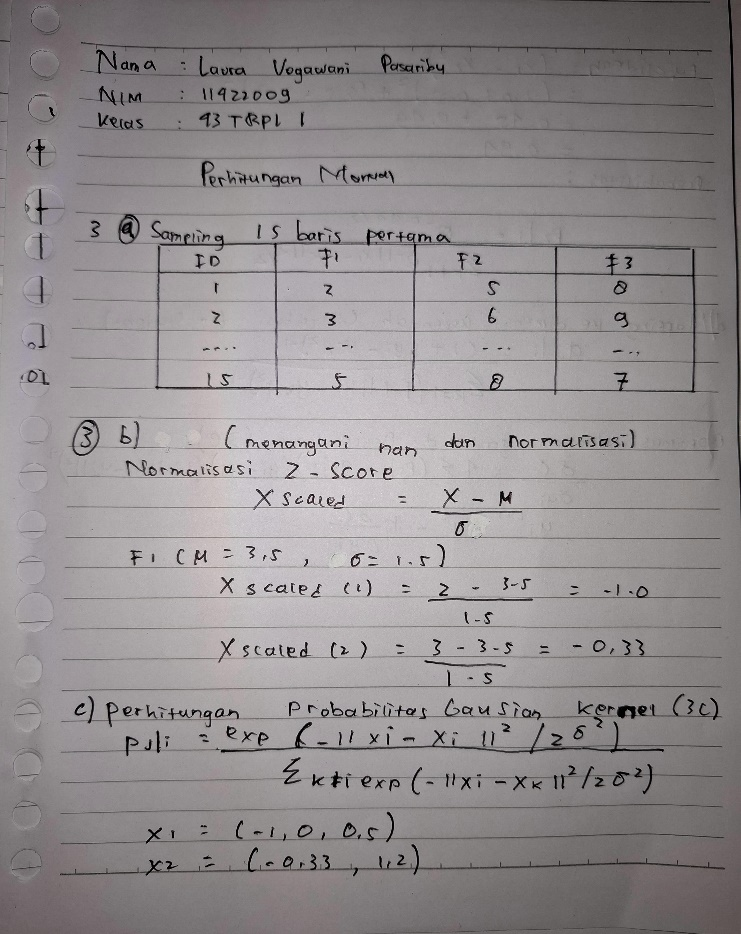 Nama : Laura Vegawani Pasaribu
NIM : 11422009
Kelas : 43 TRPL 1
Perhitungan Manual
3 a Sampling 15 baris pertama
ID F1 F2 F3
1 2 5 8
2 3 6 9
.... .... .... ....
15 5 8 7
3 b) (menangani nan dan normalisasi)
Normalisasi Z - Score
X scaled = X - M
σ
F1 (M = 3,5 , σ = 1.5)
X scaled (1) = 2 - 3-5 = -1.0
1-5
X scaled (2) = 3 - 3-5 = -0,33
1-5
c) perhitungan Probabilitas Gausian kernel (3c)
PJli = exp (-|| xi - Xi ||² / 2σ²)
Σ k≠i exp (-||xi - Xk ||²/2σ²)
x1 = (-1,0, 0.5)
x2 = (-0,33 , 1,2)